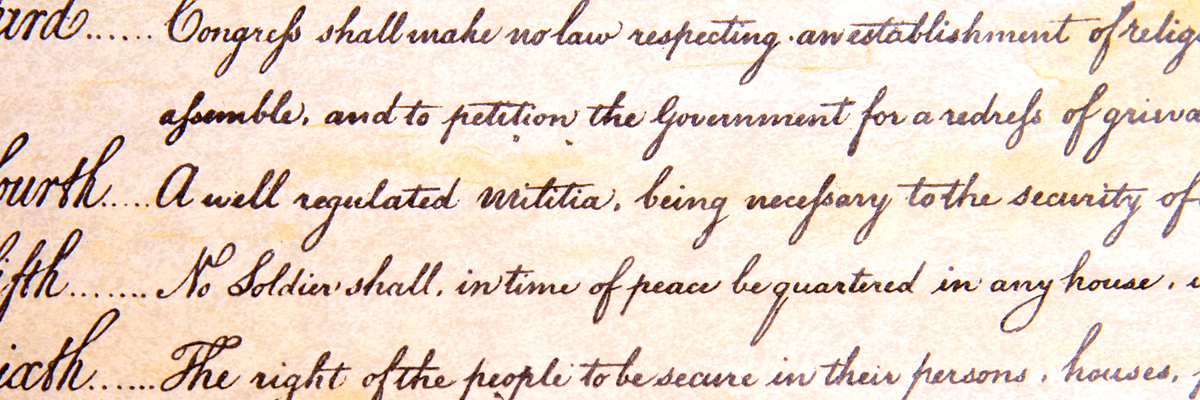 ird...... Congreſs shall make no law respecting an establishment of relig
aſsemble, and to petition the Government for a redreſs of grieva
ourth..... A well regulated Militia, being neceſsary to the security of
ifth....... No Soldier shall, in time of peace be quartered in any house,
ixth...... The right of the people to be secure in their persons, houses,